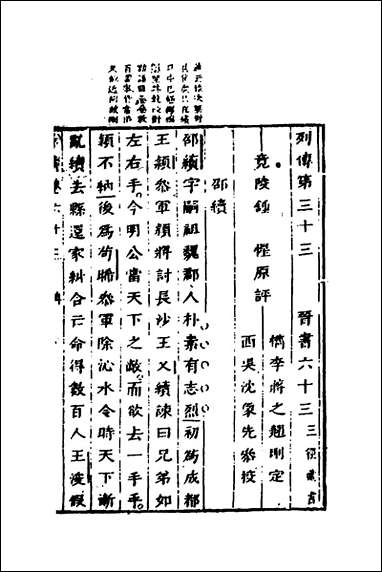 列傳第三十三　晉書六十三 三徑藏書
竟陵鍾　惺原評
檇李蔣之翹刪定
西吳沈象先叅校
邵續
邵續字嗣祖魏郡人朴素有志烈初為成都
王穎叅軍穎將討長沙王乂續諫曰兄弟如
左右手今明公當天下之敵而欲去一手乎
穎不納後為苟晞叅軍除沁水令時天下漸
亂續去縣還家糾合亡命得數百人王浚假
六十三